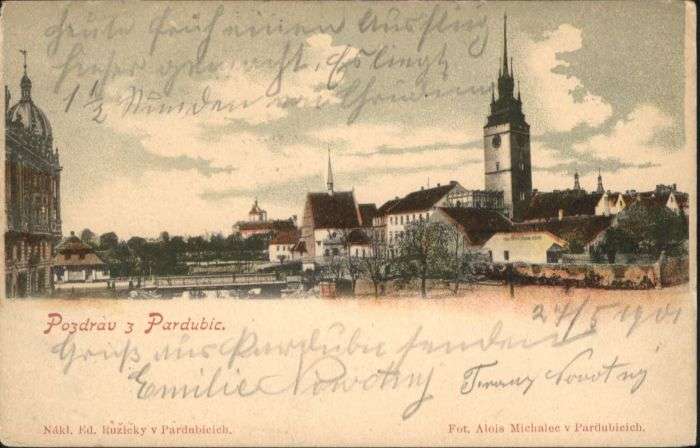 Heute früh einen Ausflug
hieher gemacht. Es liegt
1 1/2 Stunden von Chrudim
Pozdrav z Pardubic.
24/5 1901
Gruß aus Pardubic senden
Emilie Nowotny Franz Novotny
Nákl. Ed. Ružičky v Pardubicích.
Fot. Alois Michalec v Pardubicích.